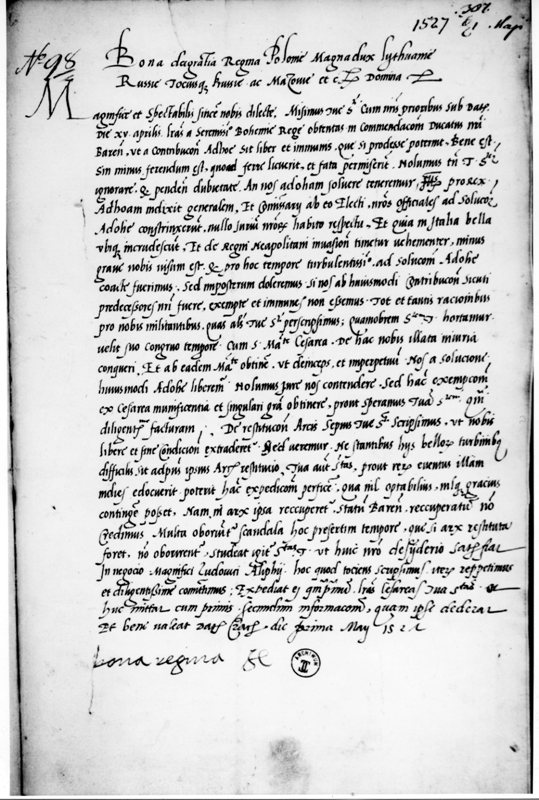 1527 1 Maji
No 98
Bona dei gratia Regina Polonie Magna dux Lythuanie
Russie Tocius Prussie ac Mazowie et c Domina
Magnifice et Spectabilis sincere nobis dilecte. Misimus Tue Cum nris prioribus sub Dat
Die xv aprilis lras a Serenissº Bohemie Rege obtentas in Commendacom Ducatus nri
Baren. vt a Contribucoe Adhoe sit liber et immunis, que si prodesse poterint. Bene est
Sin minus ferendum est, quoad ferre licuerit, et fata permiserit. Nolumus tn T
ignorare & penden dubietate. An nos adoham soluere teneremur prorex
Adhoam indixit generalem, Et Comissarij ab eo Electi, nros officiales ad Soluco
Adohe constrinxerunt, nullo jurium nror habito respectu. Et quia in Italia bella
vbiq incrudescut, Et de Regni Neapolitani invasion timetur uehementer, minus
graue nobis uisum est, & pro hoc tempore turbulentissiº, ad Solucom Adohe
coacte fuerimus. Sed imposterum doleremus Si nos ab huiusmodi Contribucon sicuti
predecessores nri fuere, exempte et immunes non essemus. Tot et tantis racionibus
pro nobis militantibus, quas als Tue perscripsimus; quamobrem hortamur
velit suo congruo tempore Cum S. Mate Cesarea. De hac nobis illata iniuria
conqueri, Et ab eadem Mate obtine. vt deinceps, et imperpetuu Nos a solucione
huiusmodi Adohe liberen. Nolumus jure nos contendere. Sed hac exempcom
ex Cesarea munificentia et singulari gra obtinere, prout speramus Tua
diligent facturam. De restitucon Arcis Sepius Tue Scripsimus, vt nobis
libere et sine Condicion extraderet. Sed veremur, Ne stantibus hys bellor turbinib
difficilis sit adpus ipsius Arcis restitucio, Tua aut prout rer euentus illam
indies edocuerit poterit hac expedicom perfice, qua nil optabilius, nilq gracius
continge posset, Nam ni arx ipsa reccuperet Statu Baren. reccuperatu no
credimus Multa oboriunt scandala hoc presertim tempore, que si arx restituta
foret, no oborirent. Studeat igit vt huic nro desyderio satisfiat
In negocio Magnifici Ludouici Aliphij hoc quod tociens scripsimus iter reppetimus
et diligentissime comittimus; Expediat ei lras Cesareas Tua &
huc mittat cum primis, secundum informacom, quam ipse dederat
Et bene valeat Dat die prima May 1527
bona regina
ARCHIWUM